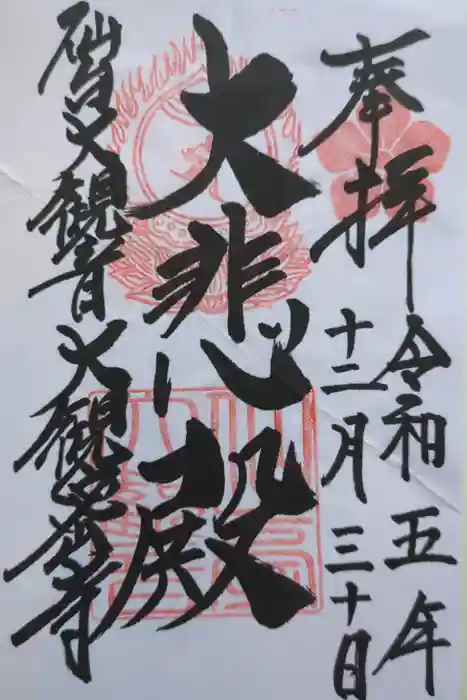 奉拝
令和五年
十二月三十日
大悲殿
仙台大観音 大観密寺